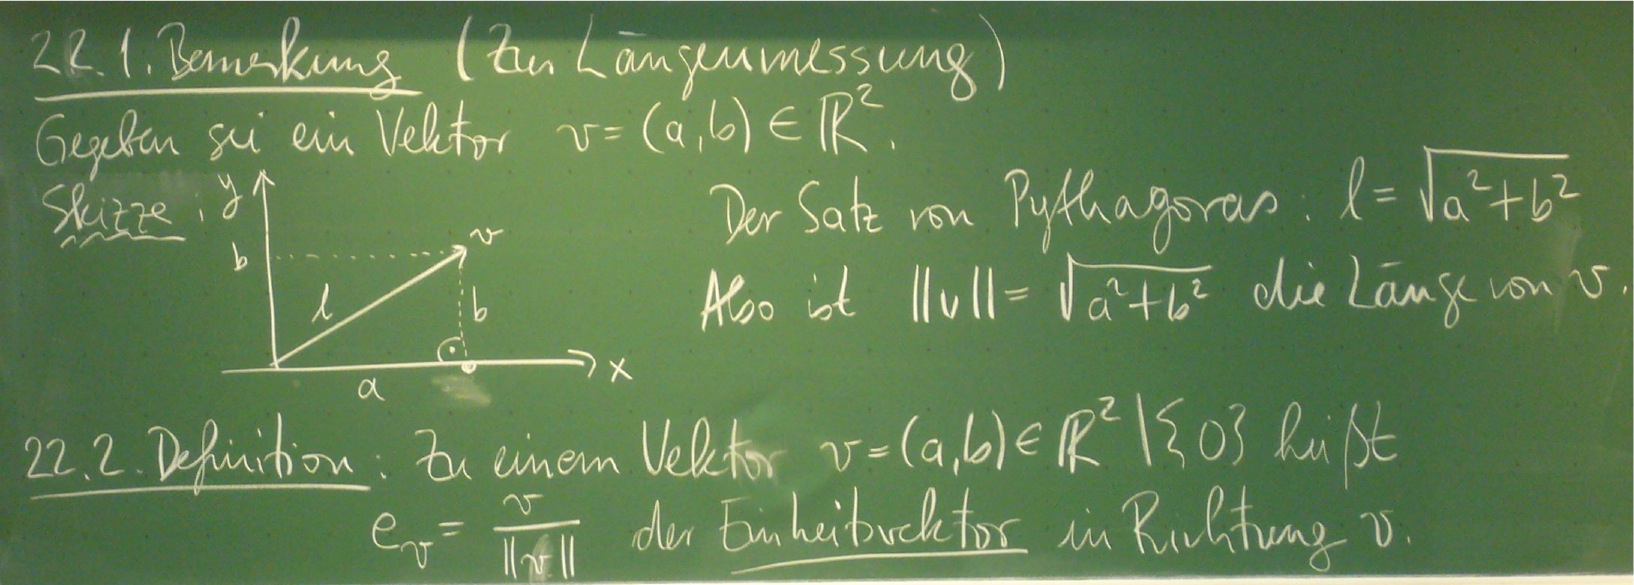 22.1. Bemerkung (Zur Längenmessung)
Gegeben sei ein Vektor v = (a,b) ∈ ℝ².
Skizze:
y
v
b
l
b
a
x
Der Satz von Pythagoras: l = √(a²+b²)
Also ist ||v|| = √(a²+b²) die Länge von v.
22.2. Definition: Zu einem Vektor v = (a,b) ∈ ℝ² \ {0} heißt
e_v = v/||v|| der Einheitsvektor in Richtung v.